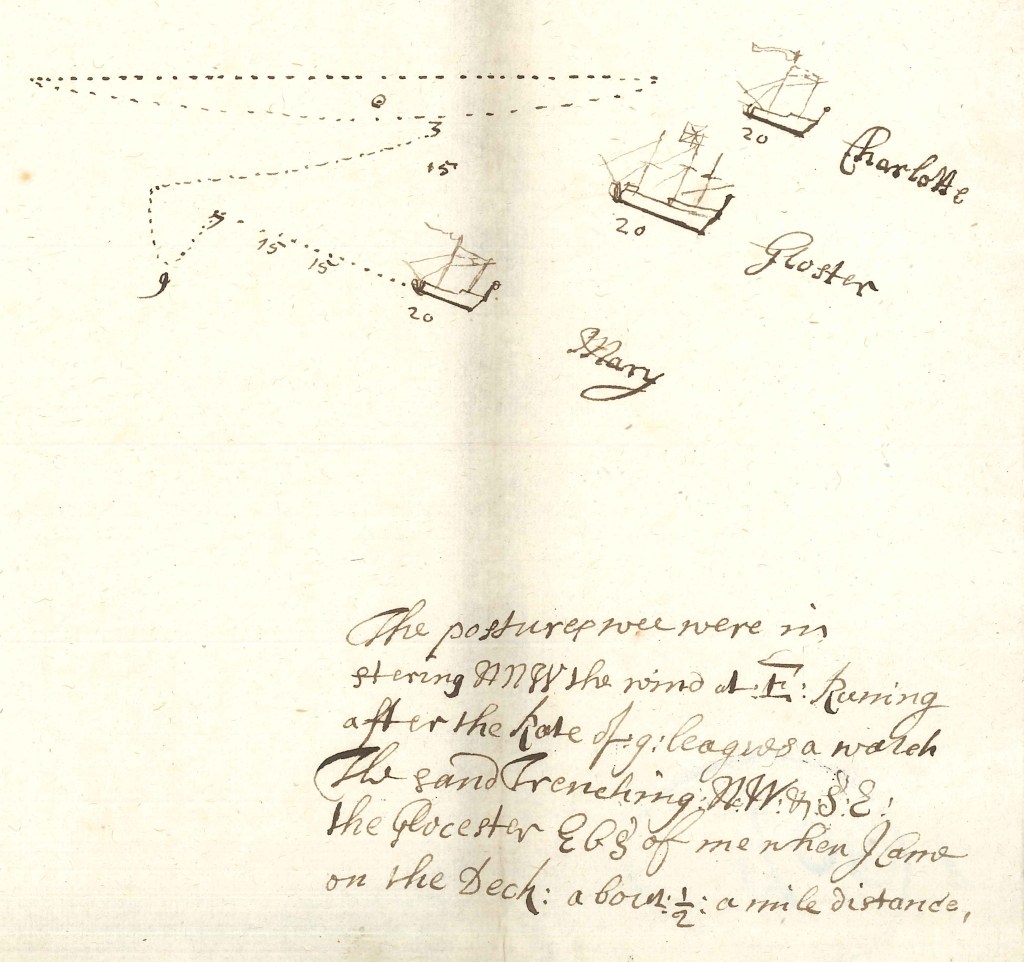 3
15
20
Charlotte
20
Gloster
5
15
15
9
20
Mary
The postures wee were in
stering NNW the wind at: E: Runing
after the Rate of :9: leagues a watch
The sand Trenching: NW: & S: E:
the Glocester EbS of me when I came
on the Deck: about: 1/2: a mile distance,